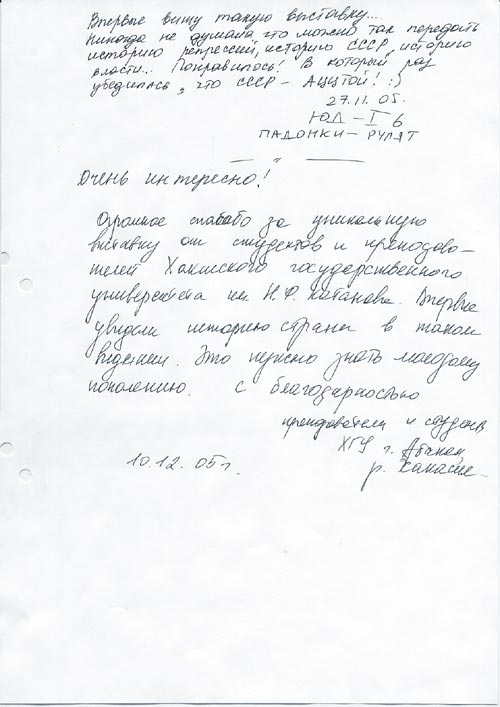 Впервые вижу такую выставку...
Никогда не думала, что можно так передать
историю репрессий, историю СССР, историю
власти... Понравилось! В который раз
убедилась, что СССР – АЦЦТОЙ! :)
27.11.05.
ЮЛ – I 6
ПАДОНКИ – РУЛЯТ
— " —
Очень интересно!
Огромное спасибо за уникальную
выставку от студентов и преподова-
телей Хакасского государственного
университета им Н.Ф. Катанова. Впервые
увидели историю страны в таком
видении. Это нужно знать молодому
поколению. с благодарностью
преподователи и студенты
ХГУ г. Абакан
10.12.05г. р. Хакасия.